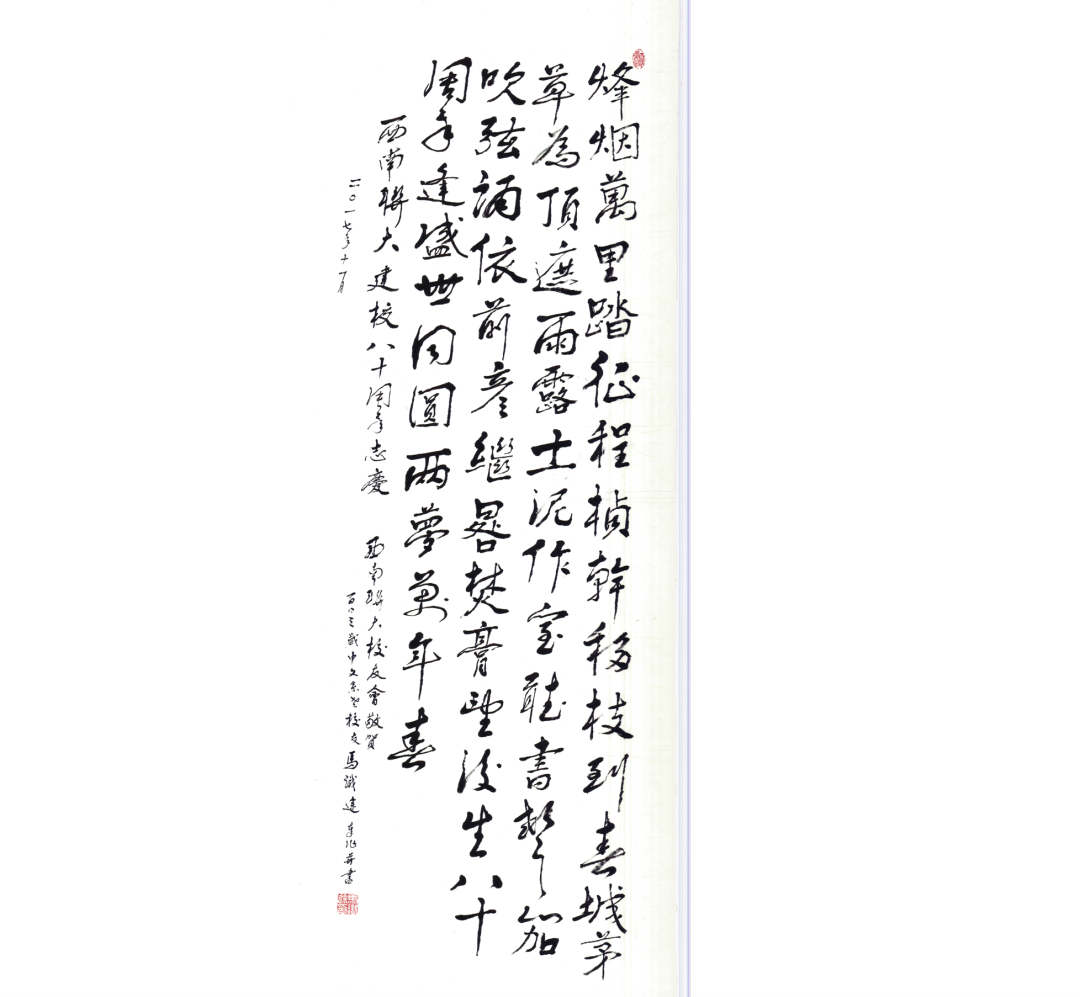 烽烟萬里踏征程楨幹移枝到春城茅
草為頂遮雨露土泥作室聽書聲笳
吹弦誦依前彦繼晷焚膏望後生八十
周年逢盛世同圓兩夢萬年春
西南聯大建校八十周年志慶
二〇一七年十一月
西南聯大校友會敬賀
百〇三歲中文系老校友馬識途作并書